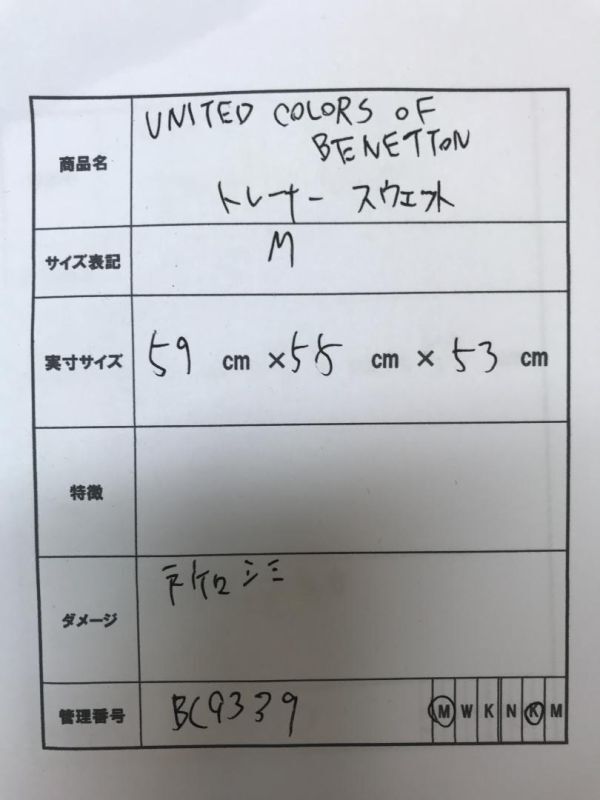 商品名
UNITED COLORS OF
BENETTON
トレーナー スウェット
サイズ表記 M
実寸サイズ 59 cm ×58 cm × 53 cm
特徴
ダメージ シミ
管理番号 BC9339 M W K N K M